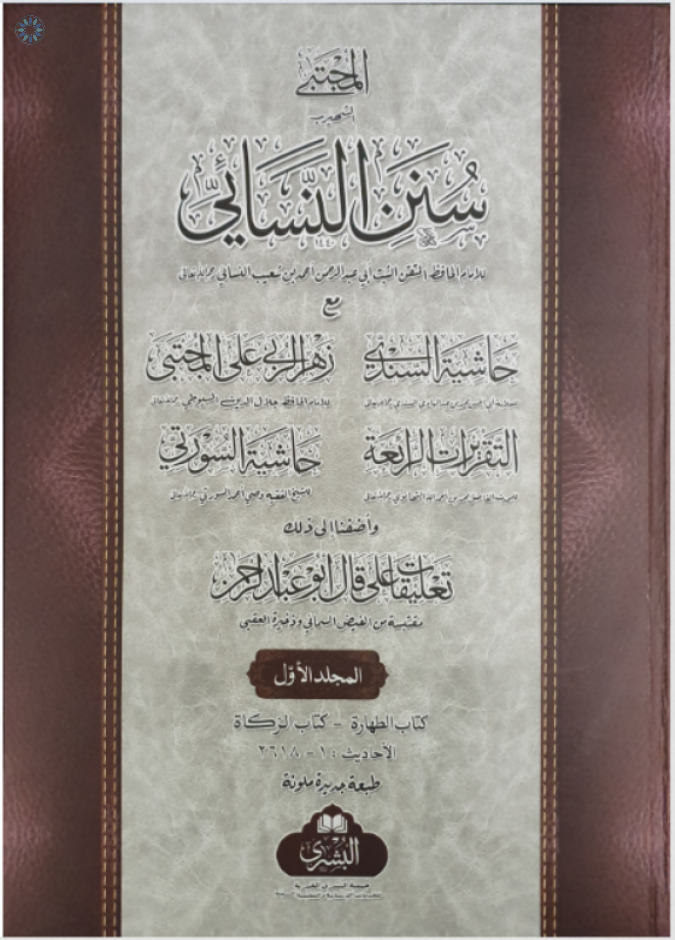 المجتبى
الشهير بـ
سُنَن النَّسَائيّ
للإمام الحافظ المتقن الثبت أبي عبد الرحمن أحمد بن شعيب النسائي رحمه الله تعالى
مع
حاشية السندي زهر الربى على المجتبى
للإمام الحافظ جلال الدين السيوطي رحمه الله تعالى
التقريرات الرائعة حاشية السورتي
للشيخ الفقيه وصي أحمد السورتي رحمه الله تعالى
وأضفنا إلى ذلك
تعليقات على قال أبو عبد الرحمن
مقتبسة من الفيض السمائي وذخيرة العقبى
المجلد الأوّل
كتاب الطهارة - كتاب الزكاة
الأحاديث : ١ - ٢٦١٨
طبعة جديدة ملونة
البشرى